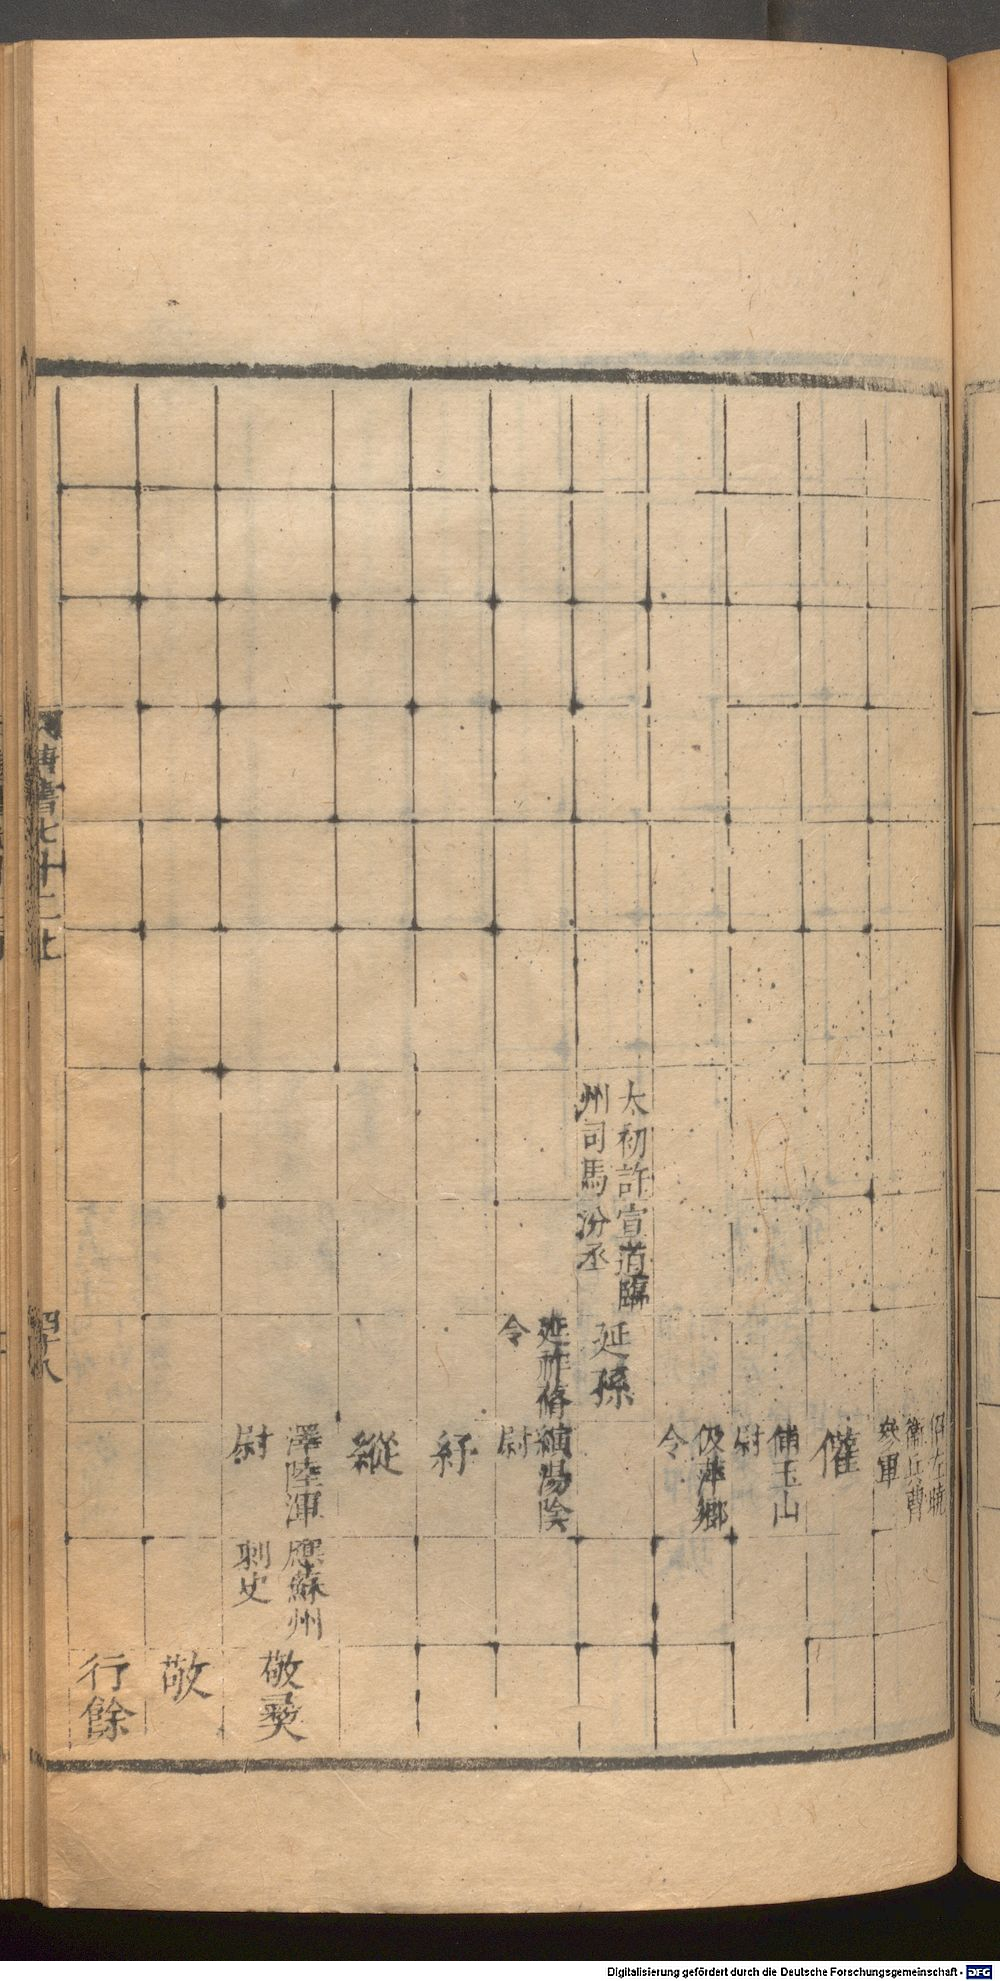 伾左曉
衛兵曹
參軍
傕
偹玉山
尉
伋萍鄉
令
太初許宣道臨
州司馬汾丞
延孫
延祚脩
令
縝湯陰
尉
紓
縱
澤陸渾
尉
應蘇州
刺史
敬彞
敬
行餘
唐書七十二上
四十八
Digitalisierung gefördert durch die Deutsche Forschungsgemeinschaft - DFG